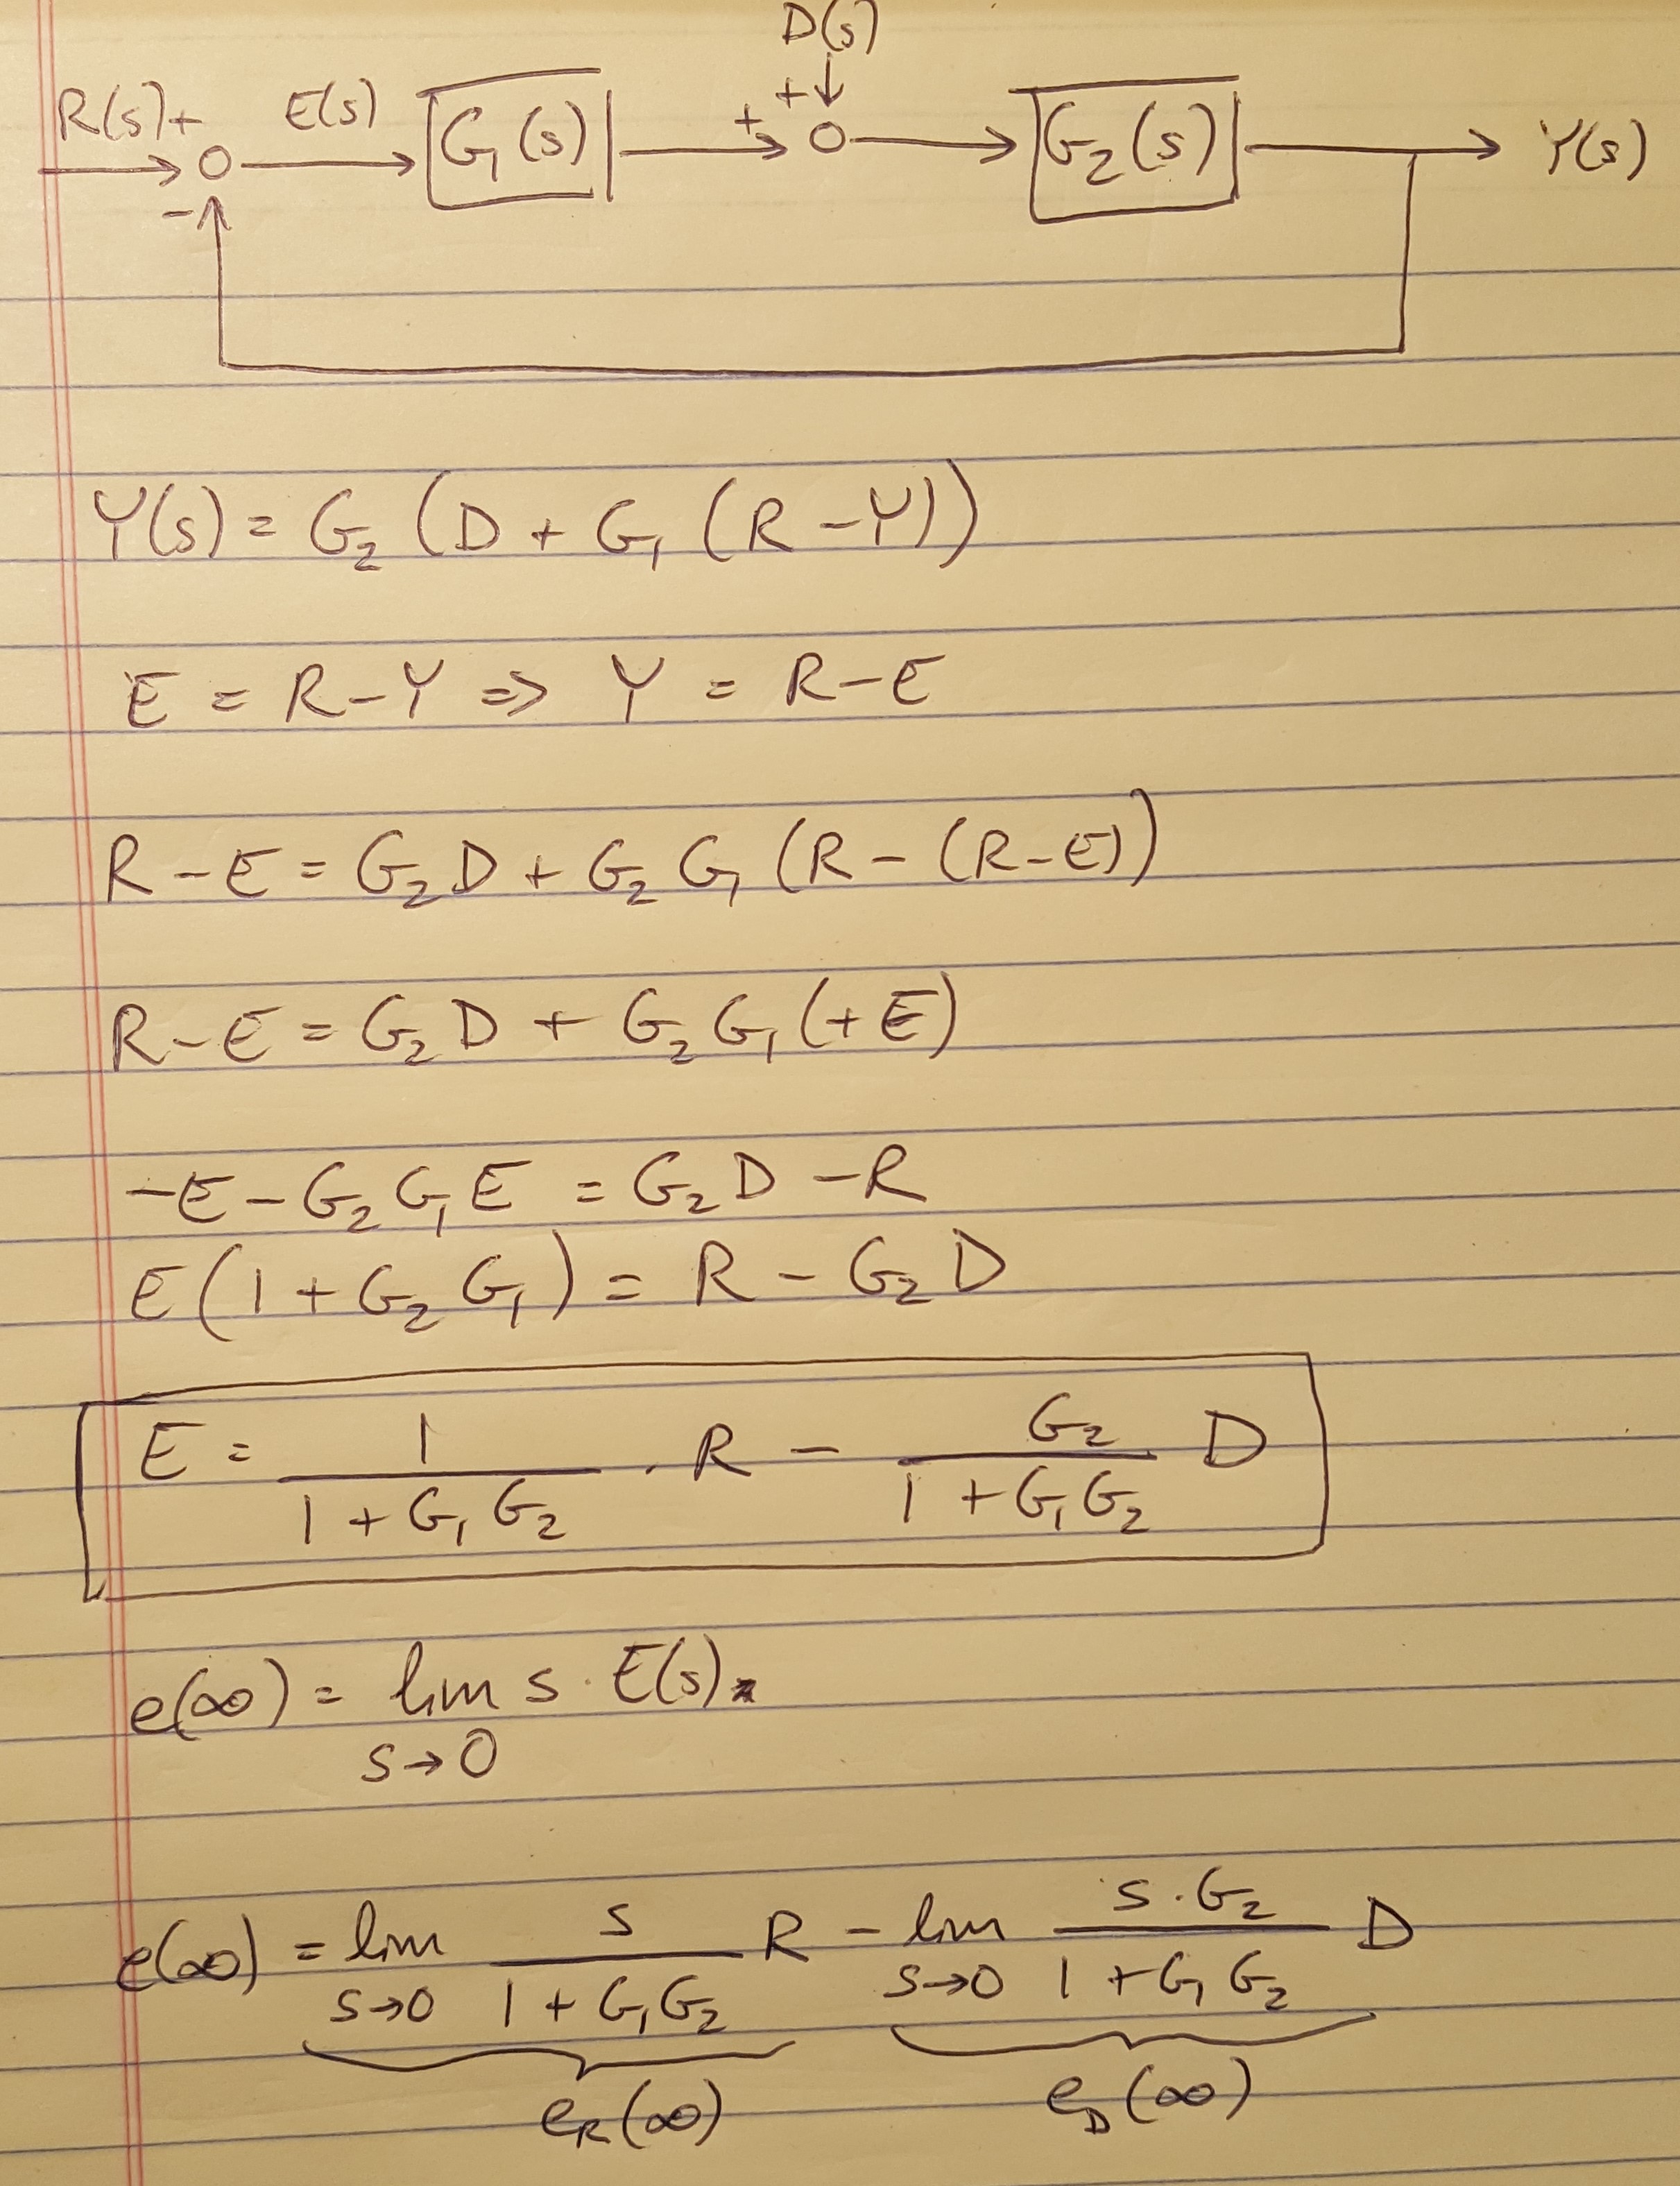 D(s)
R(s) + E(s) G₁(s) + + G₂(s) Y(s)
-
Y(s) = G₂ (D + G₁ (R - Y))
E = R - Y => Y = R - E
R - E = G₂ D + G₂ G₁ (R - (R - E))
R - E = G₂ D + G₂ G₁ (+ E)
- E - G₂ G₁ E = G₂ D - R
E (1 + G₂ G₁) = R - G₂ D
E = 1 / (1 + G₁ G₂) · R - G₂ / (1 + G₁ G₂) D
e(∞) = lim s→0 s · E(s)
e(∞) = lim s→0 s / (1 + G₁ G₂) R - lim s→0 s · G₂ / (1 + G₁ G₂) D
e_R(∞) e_D(∞)